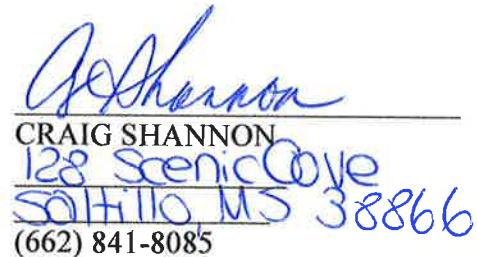 CShannon
CRAIG SHANNON
128 Scenic Cove
Saltillo, MS 38866
(662) 841-8085